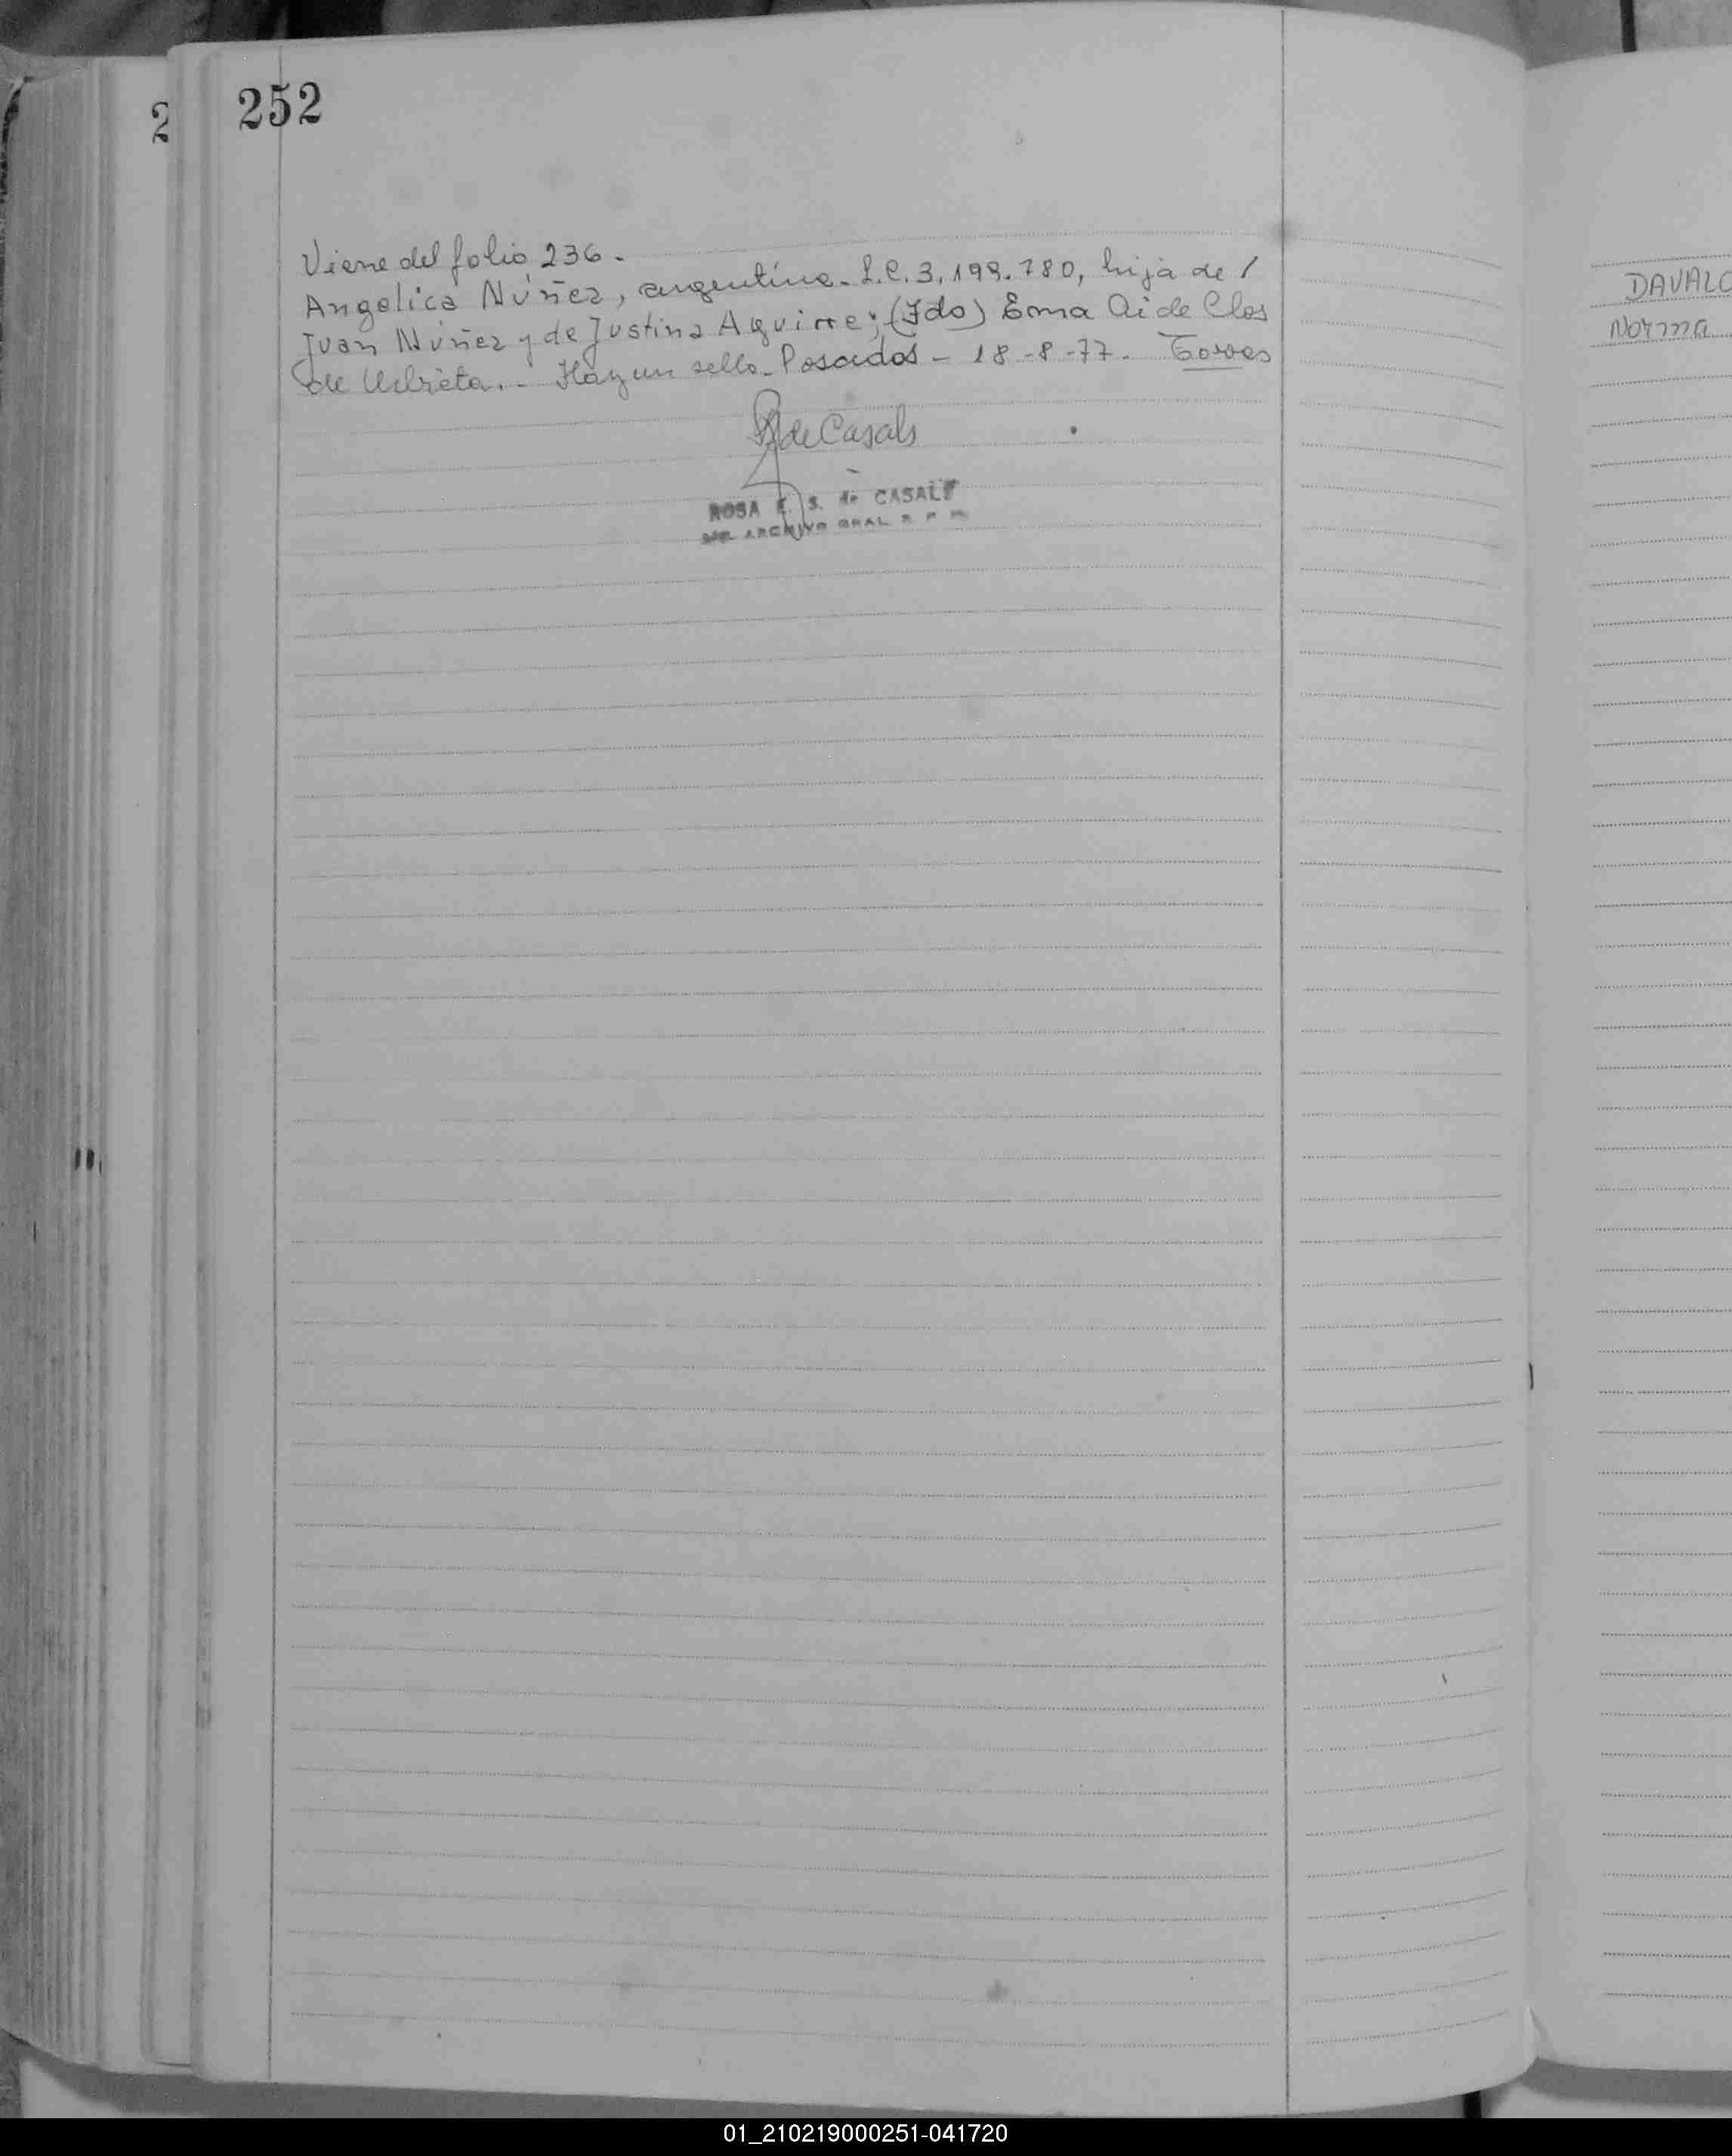 2
252
Viene del folio 236.
Angelica Núñez, argentina. L.C. 3.199.780, hija de /
Juan Núñez y de Justina Aguirre; (Fdo) Ema Aide Clos
de Urbieta. - Hay un sello. Posadas - 18-8-77. Torres
de Casals
ROSA E. S. de CASALS
ARCHIVO GRAL R. P. M.
DAVALO
Norma
01_210219000251-041720